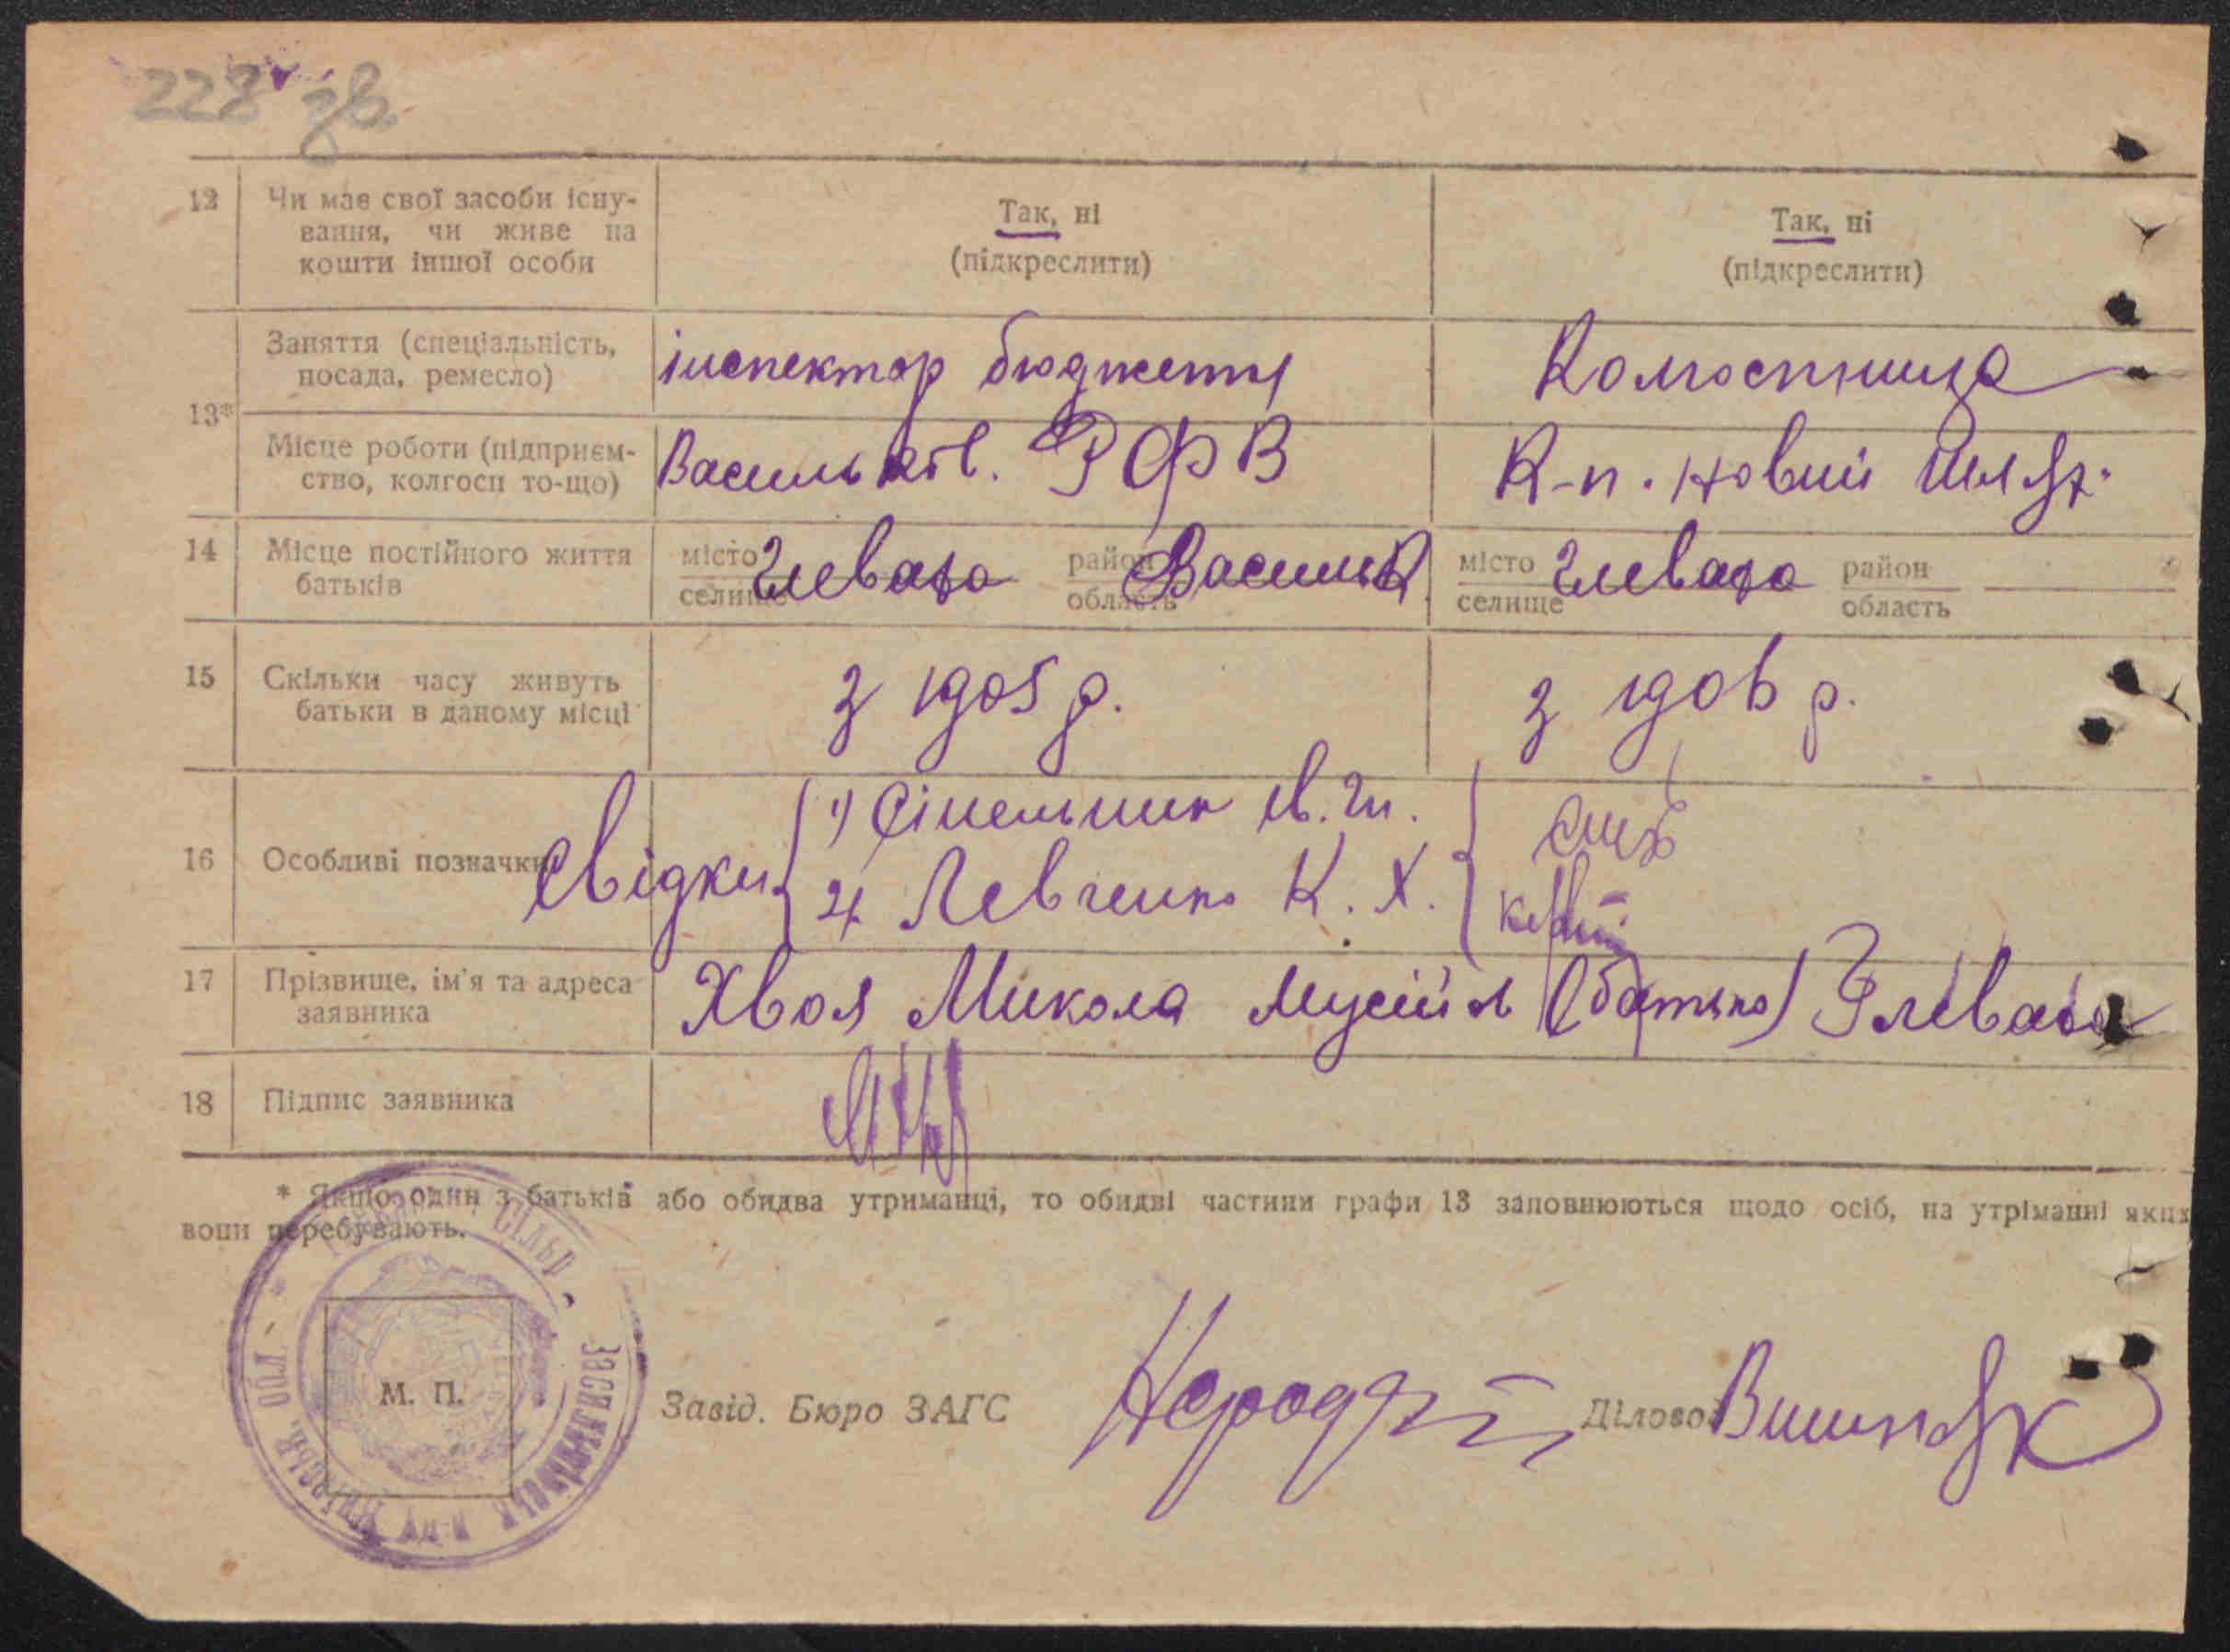 228 зв.
12 Чи має свої засоби існу-
вання, чи живе на
кошти іншої особи
Так, ні
(підкреслити)
Так, ні
(підкреслити)
13*
Заняття (спеціальність,
посада, ремесло)
інспектор бюджету
Колгоспниця
Місце роботи (підприєм-
ство, колгосп то-що)
Васильків. РФВ
К-п. Новий Шлях.
14 Місце постійного життя
батьків
місто
селище
Глеваха
район
область
Васильк.
місто
селище
Глеваха
район
область
15 Скільки часу живуть
батьки в даному місці
з 1905 р.
з 1906 р.
16 Особливі позначки
Свідки
1) Сінельник
2) Левченко К. Х.
17 Прізвище, ім'я та адреса
заявника
Хвоя Микола Мусійов (батько) Глеваха
18 Підпис заявника
* Якщо один з батьків або обидва утриманці, то обидві частини графи 13 заповнюються щодо осіб, на утріманні яких
вони перебувають.
М. П.
Завід. Бюро ЗАГС
Діловод